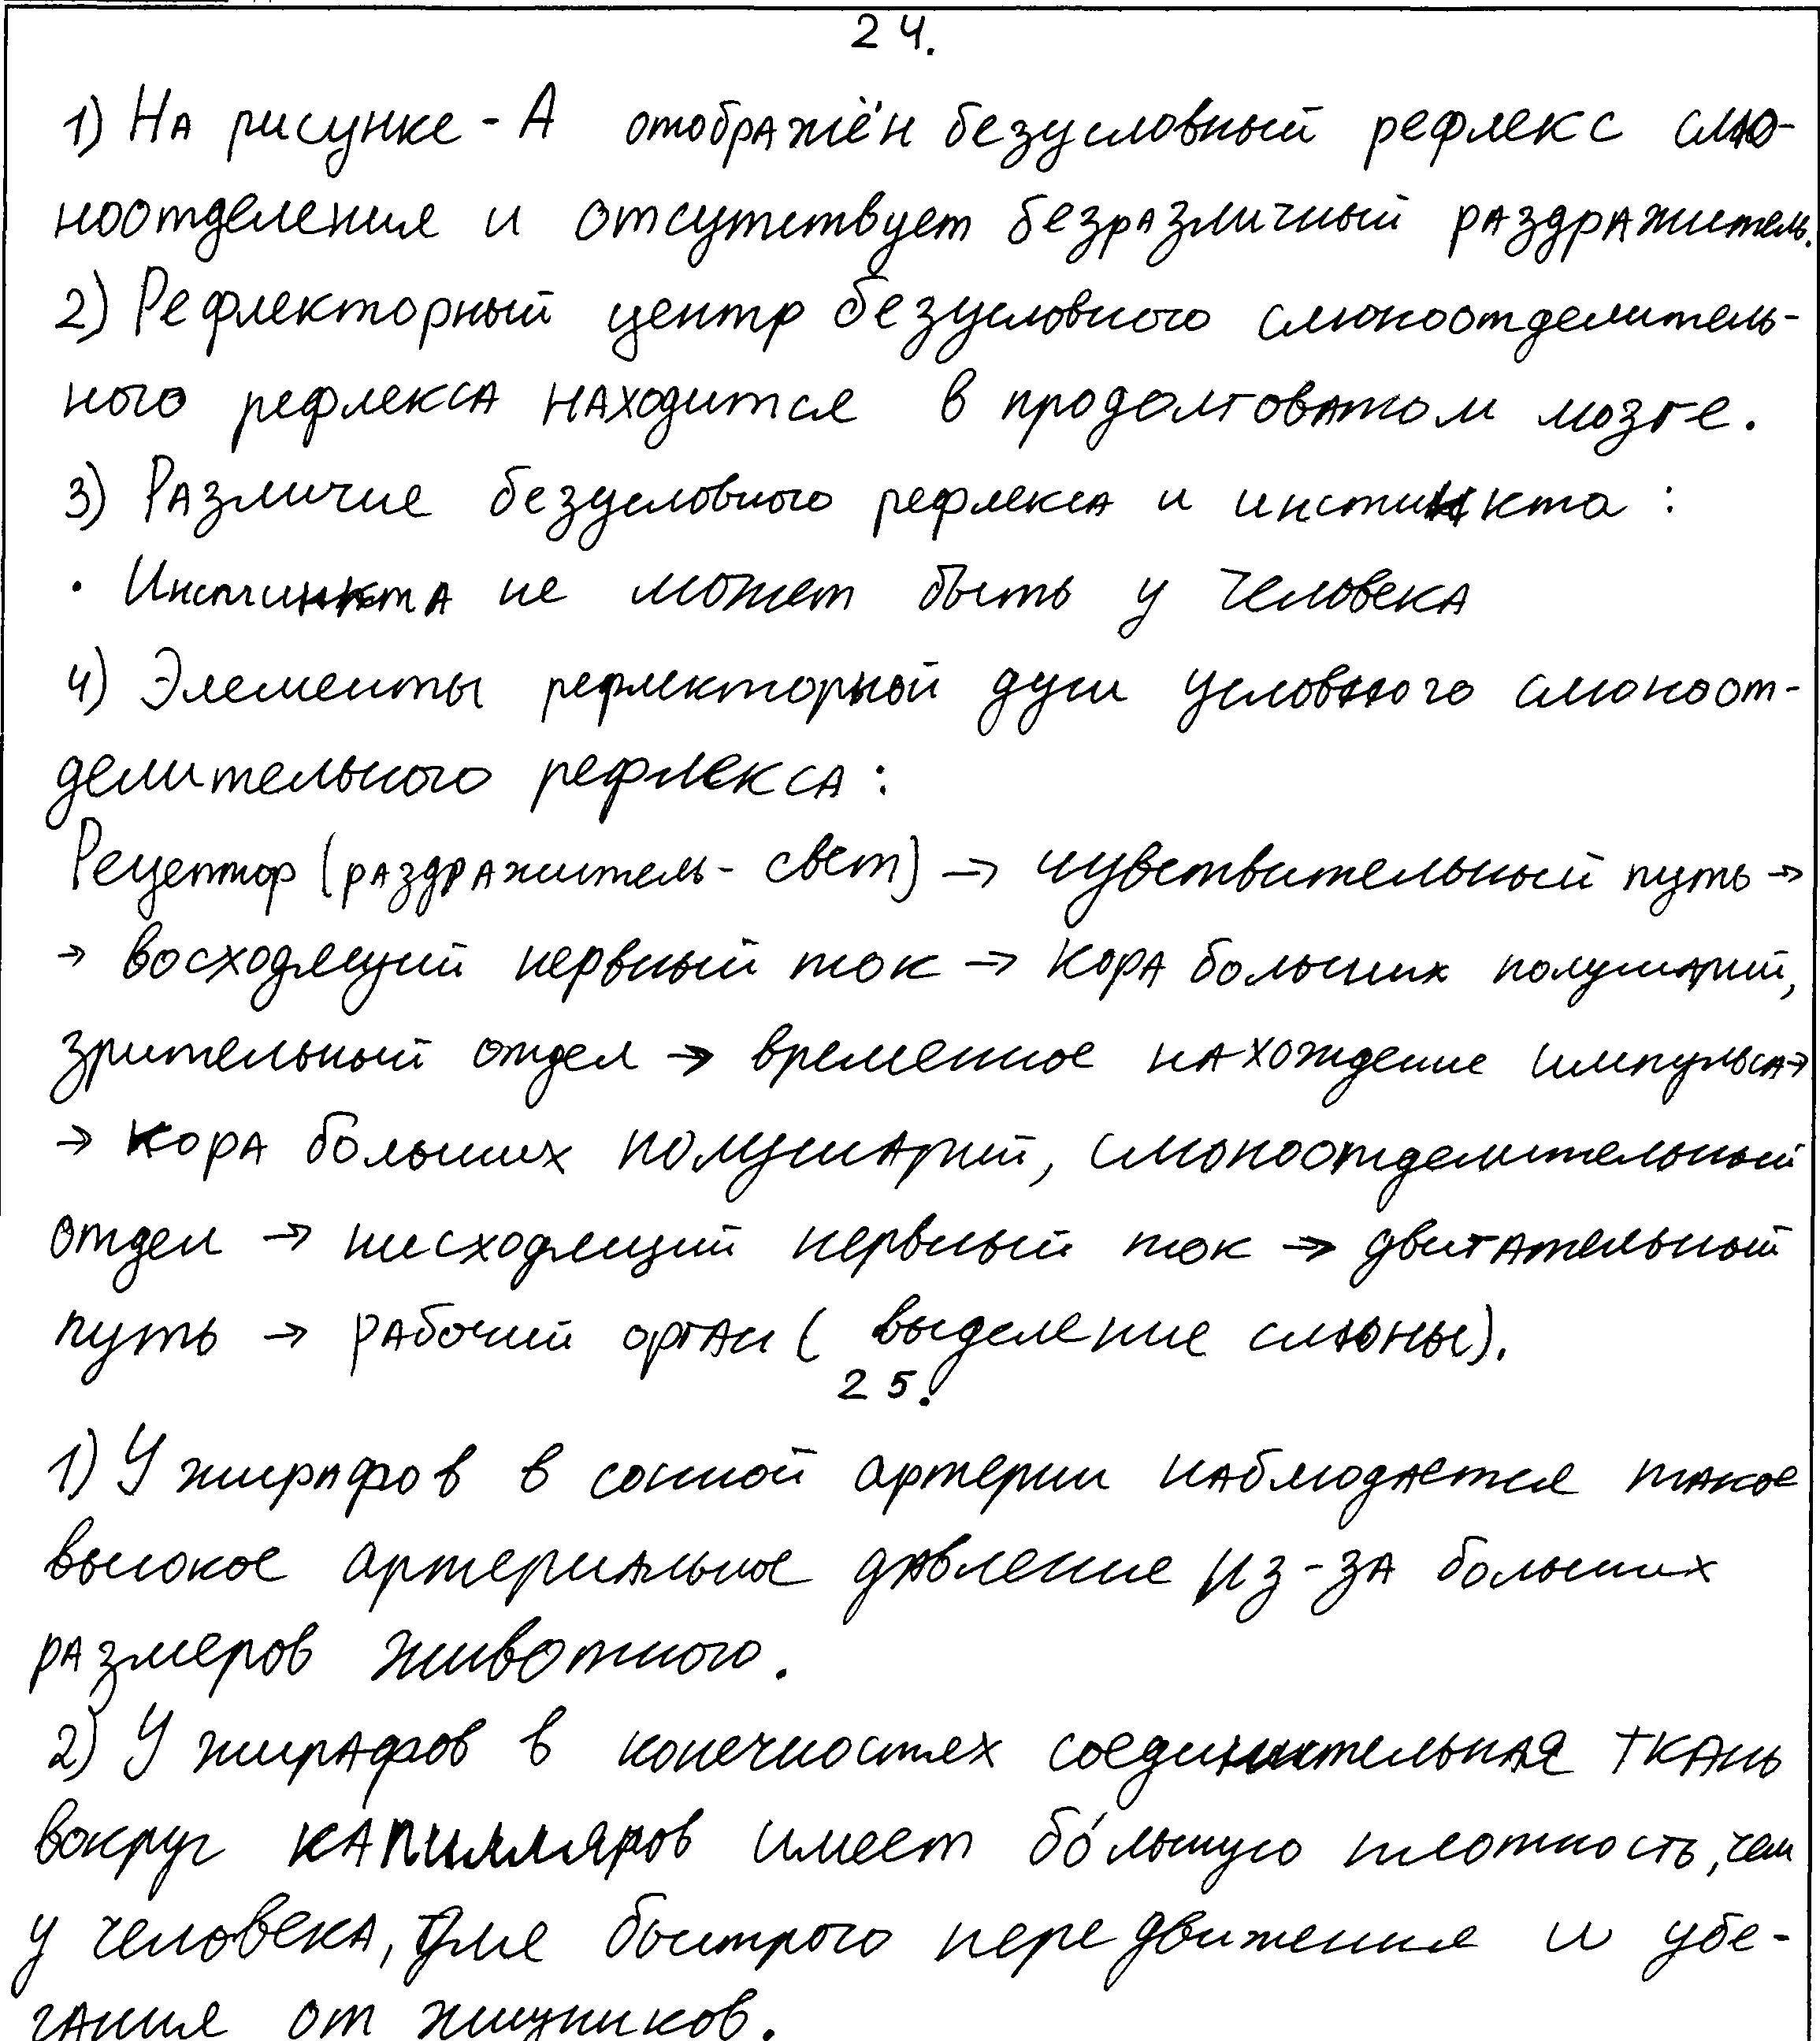 24.
1) На рисунке - А отображён безусловный рефлекс слю-
ноотделения и отсутствует безразличный раздражитель.
2) Рефлекторный центр безусловного слюноотделитель-
ного рефлекса находится в продолговатом мозге.
3) Различие безусловного рефлекса и инстинкта:
• Инстинкта не может быть у человека
4) Элементы рефлекторной дуги условного слюноот-
делительного рефлекса:
Рецептор (раздражитель - свет) → чувствительный путь →
→ восходящий нервный ток → кора больших полушарий,
зрительный отдел → временное нахождение импульса →
→ кора больших полушарий, слюноотделительный
отдел → нисходящий нервный ток → двигательный
путь → рабочий орган (выделение слюны).
25.
1) У жирафов в сонной артерии наблюдается такое
высокое артериальное давление из-за больших
размеров животного.
2) У жирафов в конечностях соединительная ткань
вокруг капилляров имеет бо́льшую плотность, чем
у человека, для быстрого передвижения и убе-
гания от хищников.